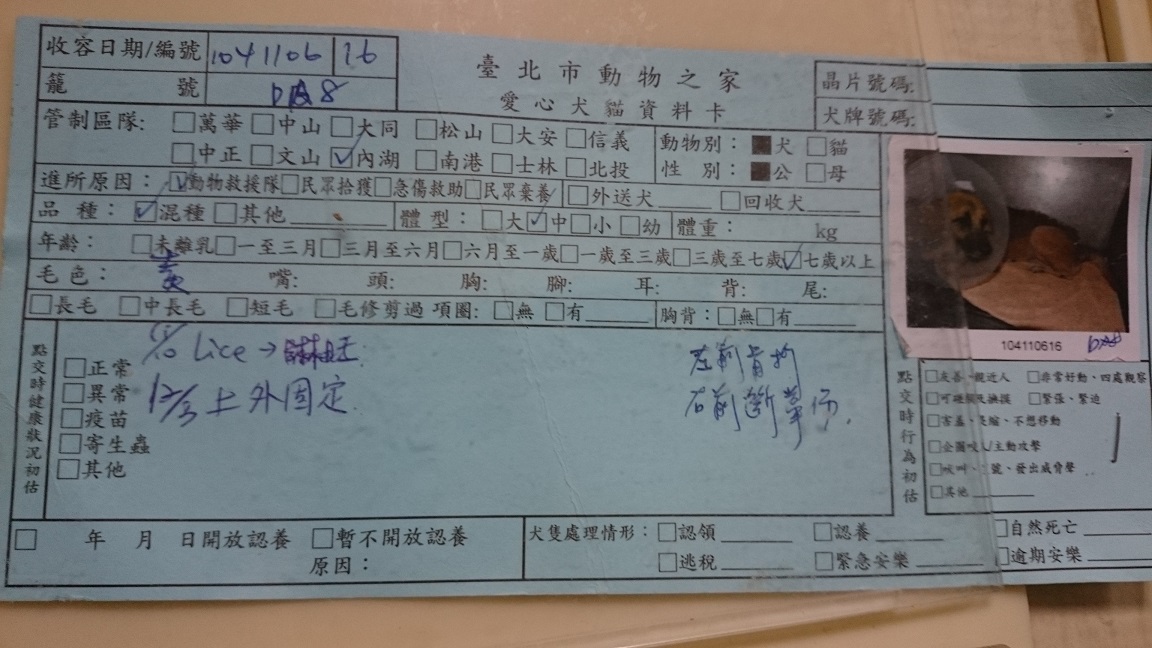 臺北市動物之家
愛心犬貓資料卡
收容日期/編號 1041106 16
籠號 DA8
晶片號碼:
犬牌號碼:
管制區隊: □萬華 □中山 □大同 □松山 □大安 □信義
□中正 □文山 ☑內湖 □南港 □士林 □北投
動物別: ■犬 □貓
性別: ■公 □母
進所原因: ☑動物救援隊 □民眾拾獲 □急傷救助 □民眾棄養 □外送犬 □回收犬
品種: ☑混種 □其他 體型: □大 ☑中 □小 □幼 體重: kg
年齡: □未離乳 □一至三月 □三月至六月 □六月至一歲 □一歲至三歲 □三歲至七歲 ☑七歲以上
毛色: 黃 嘴: 頭: 胸: 腳: 耳: 背: 尾:
□長毛 □中長毛 □短毛 □毛修剪過 項圈: □無 □有 胸背: □無 □有
點交時健康狀況初估
□正常
□異常
□疫苗
□寄生蟲
□其他
Lice →
12/3 上外固定
左前骨折
右前斷掌傷.
104110616 DA8
點交時行為初估
□友善、親近人 □非常好動、四處觀察
□可碰觸及撫摸 □緊張、緊迫
□害羞、畏縮、不想移動
□企圖咬人/主動攻擊
□吠叫、 號、發出威脅聲
□其他
□ 年 月 日開放認養 □暫不開放認養
原因:
犬隻處理情形: □認領 □認養 □自然死亡
□逃稅 □緊急安樂 □逾期安樂